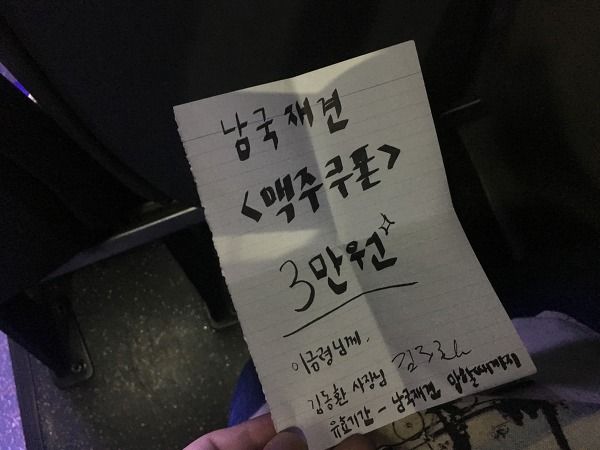 남국재견
<맥주쿠폰>
3만원
이금령님께.
김동환 사장님
유효기간 - 남국재견 망할때까지